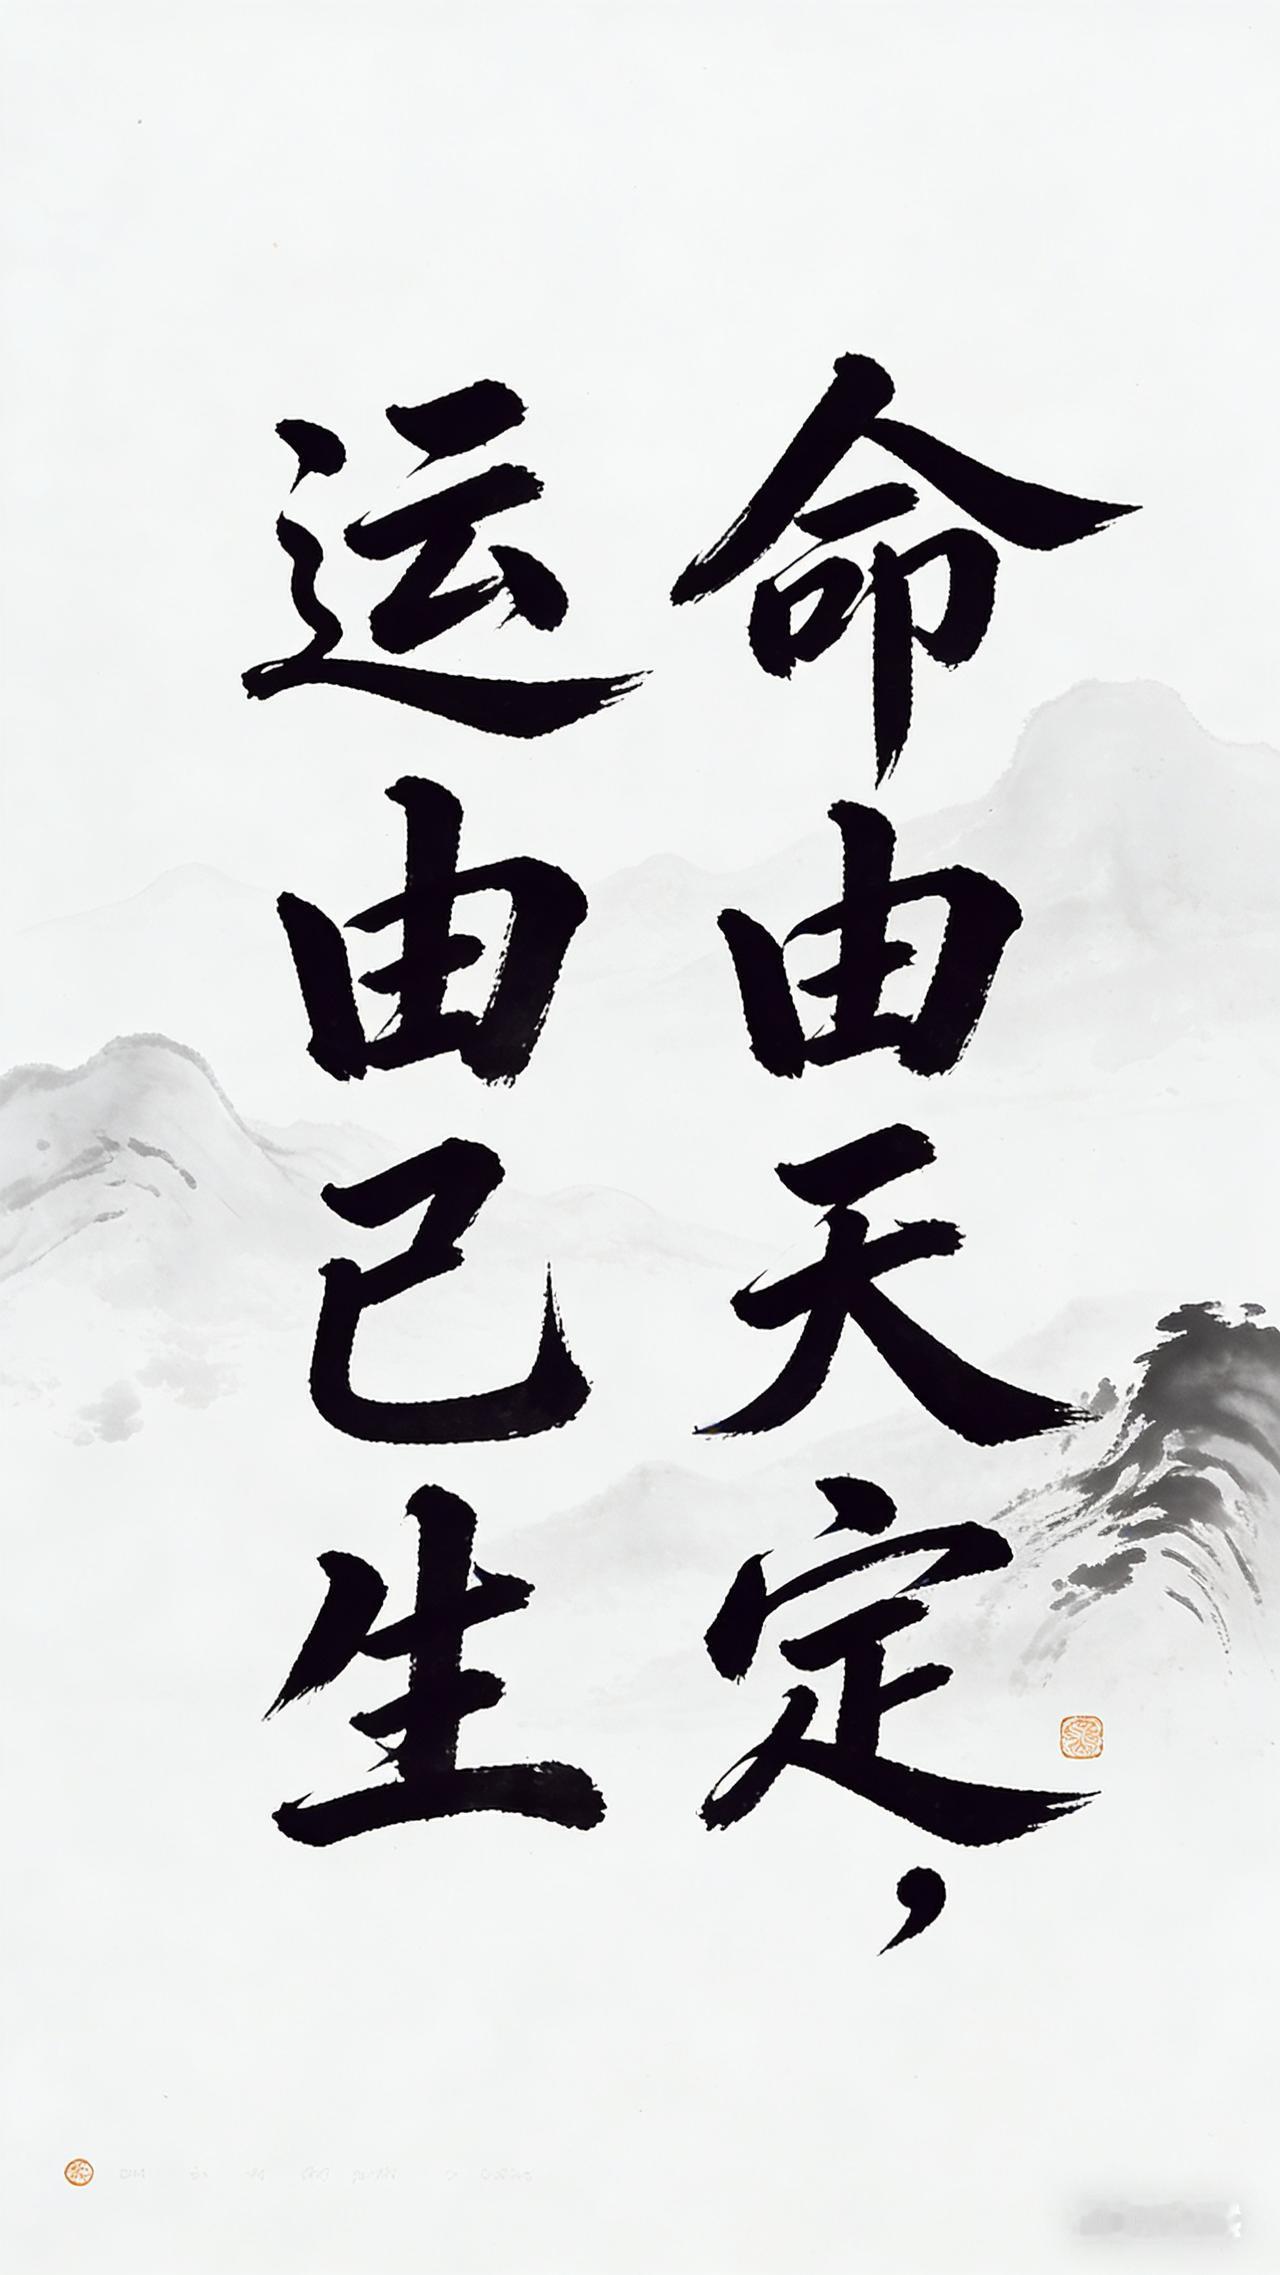 命由天定，
运由己生